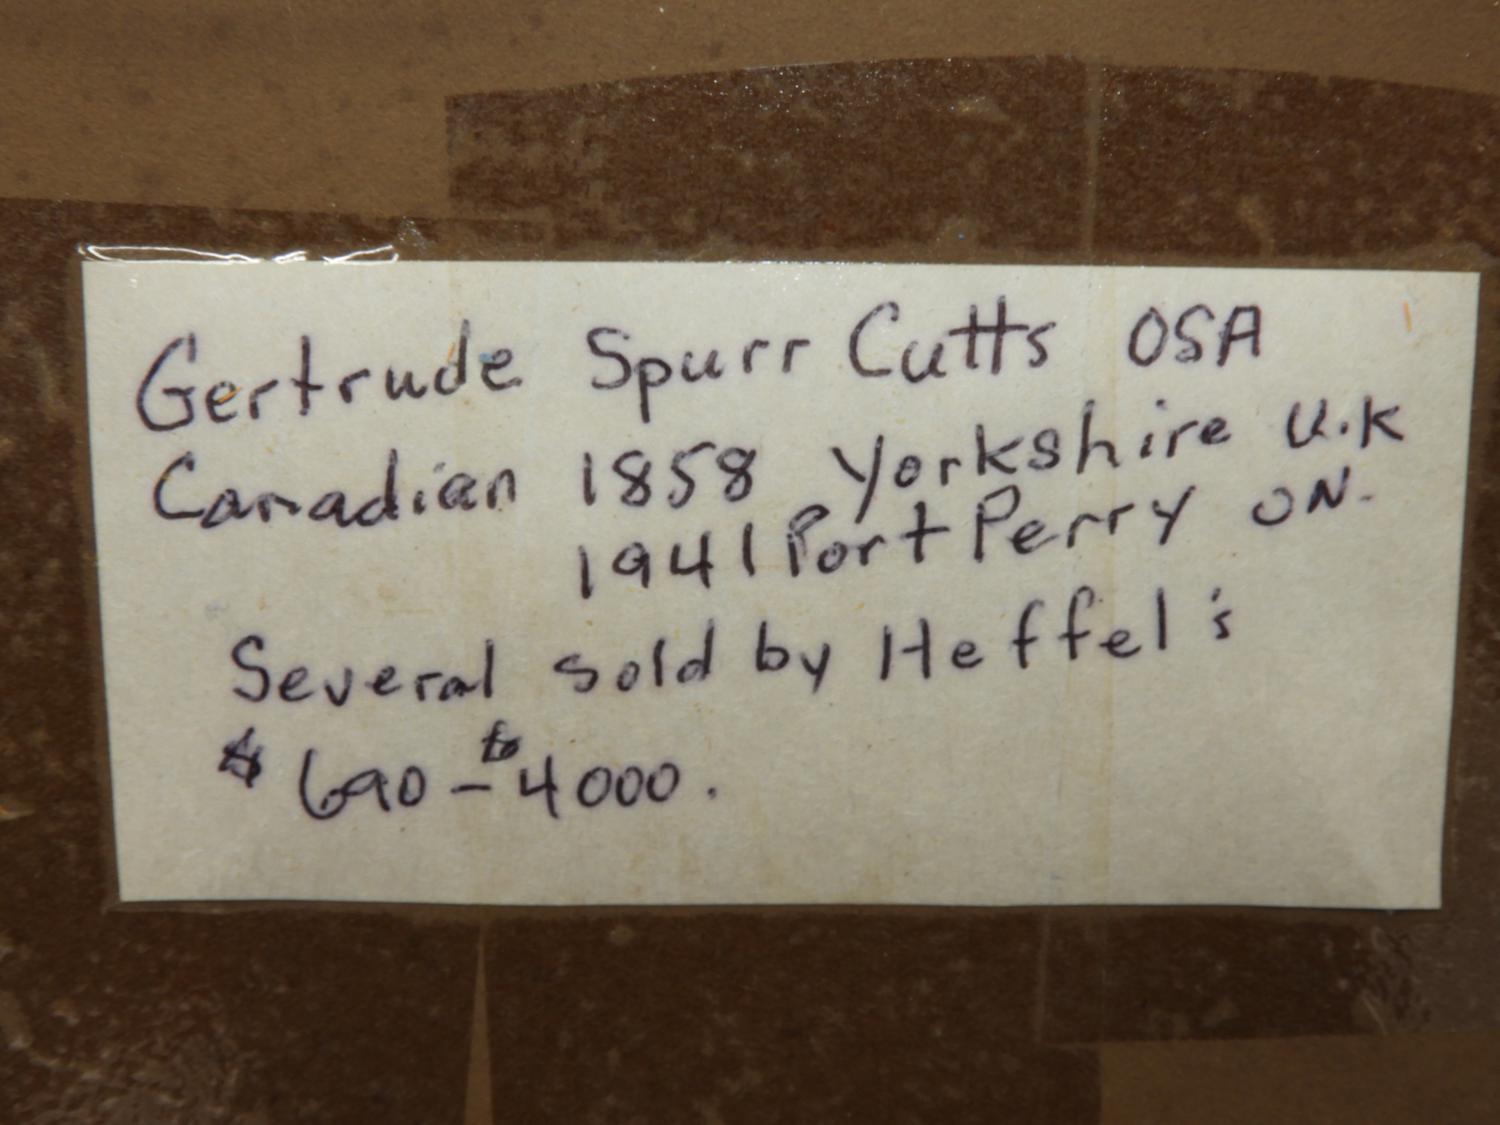 Gertrude Spurr Cutts OSA
Canadian 1858 Yorkshire U.K
1941 Port Perry ON.
Several sold by Heffel's
$690 - $4000.